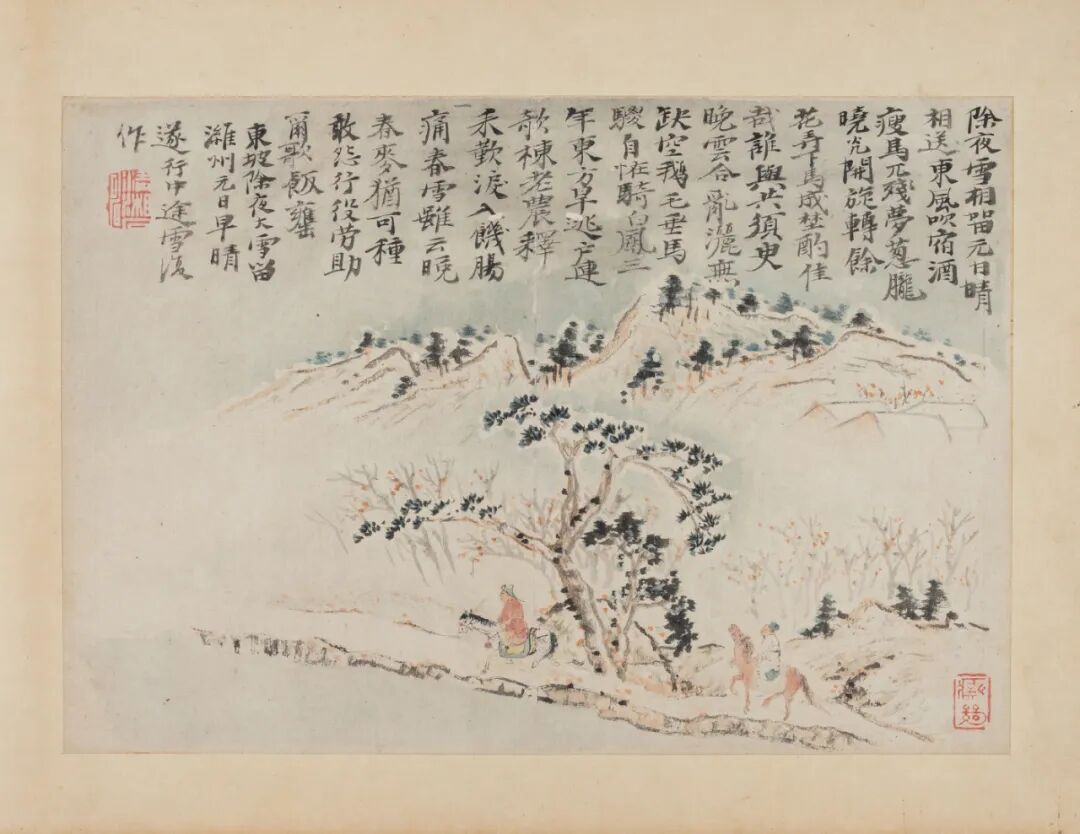 除夜雪相留元日晴
相送東風吹宿酒
瘦馬兀殘夢葱朧
曉光開旋轉餘
花弄下馬成埜酌佳
哉誰與共須臾
晚雲合亂灑無
缺空鵝毛垂馬
騣自恠騎白鳳三
年東方旱逃亡連
欹棟老農釋
耒歎淚入饑腸
痛春雪雖云晚
春麥猶可種
敢怨行役勞助
爾歌飯甕
東坡除夜大雪留
濰州元日早晴
遂行中途雪復
作